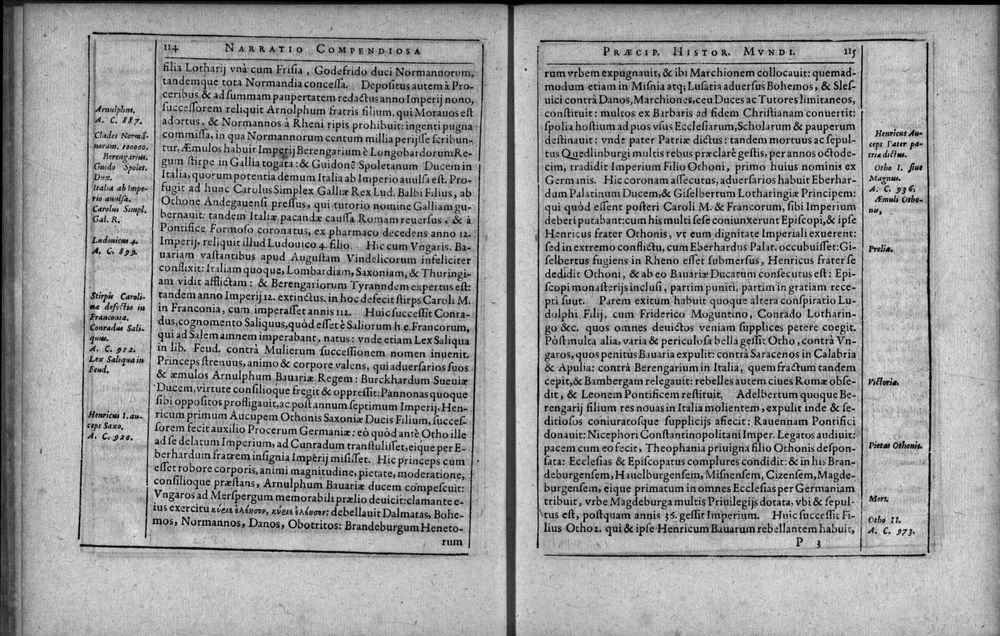 114 NARRATIO COMPENDIOSA
filia Lotharij vnà cum Frisia, Godefrido duci Normannorum,
tandemque tota Normandia concessa. Depositus autem à Pro-
ceribus & ad summam paupertatem redactus anno Imperij nono,
successorem reliquit Arnolphum fratris filium, qui Morauos est
adortus, & Normannos à Rheni ripis prohibuit: ingenti pugna
commissa, in qua Normannorum centum millia perijsse scribun-
tur, Æmulos habuit Imperij Berengarium è Longobardorum Re-
gum stirpe in Gallia togata: & Guidonē Spoletanum Ducem in
Italia, quorum potentia demum Italia ab Imperio auulsa est. Pro-
fugit ad hunc Carolus Simplex Galliæ Rex Lud. Balbi Filius, ab
Othone Andegauensi pressus, qui tutorio nomine Galliam gu-
bernauit: tandem Italiæ pacandæ caussa Romam reuersus, & à
Pontifice Formoso coronatus, ex pharmaco decedens anno 12.
Imperij, reliquit illud Ludouico 4. filio. Hic cum Vngaris. Ba-
uariam vastantibus apud Augustam Vindelicorum infeliciter
conflixit: Italiam quoque, Lombardiam, Saxoniam, & Thuringi-
am vidit afflictam: & Berengariorum Tyranndem expertus est:
tandem anno Imperij 12. extinctus. in hoc defecit stirps Caroli M.
in Franconia, cum imperasset annis 112. Huic successit Conra-
dus, cognomento Saliquus, quòd esset è Saliorum h. e. Francorum,
qui ad Salem amnem imperabant, natus: vnde etiam Lex Saliqua
in lib. Feud. contrà Mulierum successionem nomen inuenit.
Princeps strenuus, animo & corpore valens, qui aduersarios suos
& æmulos Arnulphum Bauariæ Regem: Burckhardum Sueuiæ
Ducem, virtute consilioque fregit & oppressit: Pannonas quoque
sibi oppositos profligauit, ac post annum septimum Imperij. Hen-
ricum primum Aucupem Othonis Saxoniæ Ducis Filium, succes-
sorem fecit auxilio Procerum Germaniæ: eò quòd antè Otho ille
ad se delatum Imperium, ad Cunradum transtulisset, eique per E-
berhardum fratrem insignia Imperij misisset. Hic princeps cum
esset robore corporis, animi magnitudine, pietate, moderatione,
consilioque præstans, Arnulphum Bauariæ ducem compescuit:
Vngaros ad Merspergum memorabili prælio deuicit: clamante e-
ius exercitu κύειε ἐλέησον, κύειε ἐλέησον: debellauit Dalmatas, Bohe-
mos, Normannos, Danos, Obotritos: Brandeburgum Heneto-
rum
Arnulphus.
A. C. 887.
Clades Normā-
norum. 100000.
Berengarius.
Guido Spolet.
Dux.
Italia ab Impe-
rio auulsa.
Carolus Simpl.
Gal. R.
Ludouicus 4.
A. C. 899.
Stirpis Caroli-
næ defectio in
Franconia.
Conradus Sali-
quus.
A. C. 912.
Lex Saliqua in
Feud.
Henricus I. au-
ceps Saxo.
A. C. 920.
PRÆCIP. HISTOR. MVNDI. 115
rum vrbem expugnauit, & ibi Marchionem collocauit: quemad-
modum etiam in Misnia atq; Lusatia aduersus Bohemos, & Sles-
uici contrà Danos, Marchiones, ceu Duces ac Tutores limitaneos,
constituit: multos ex Barbaris ad fidem Christianam conuertit:
spolia hostium ad pios vsus Ecclesiarum, Scholarum & pauperum
destinauit: vnde pater Patriæ dictus: tandem mortuus ac sepul-
tus Quedlinburgi multis rebus præclarè gestis, per annos octode-
cim, tradidit Imperium Filio Othoni, primo huius nominis ex
Germanis. Hic coronam assecutus, aduersarios habuit Eberhar-
dum Palatinum Ducem, & Giselbertum Lotharingiæ Principem:
qui quòd essent posteri Caroli M. & Francorum, sibi Imperium
deberi putabant: cum his multi sese coniunxerunt Episcopi, & ipse
Henricus frater Othonis, vt eum dignitate Imperiali exuerent:
sed in extremo conflictu, cum Eberhardus Palat. occubuisset: Gi-
selbertus fugiens in Rheno esset submersus, Henricus frater se
dedidit Othoni, & ab eo Bauariæ Ducatum consecutus est: Epi-
scopi monasterijs inclusi, partim puniti, partim in gratiam rece-
pti suut. Parem exitum habuit quoque altera conspiratio Lu-
dolphi Filij, cum Friderico Moguntino, Conrado Lotharin-
go &c. quos omnes deuictos veniam supplices petere coegit.
Pòst multa alia, varia & periculosa bella gessit Otho, contrà Vn-
garos, quos penitùs Bauaria expulit: contrà Saracenos in Calabria
& Apulia: contrà Berengarium in Italia, quem fractum tandem
cepit, & Bambergam relegauit: rebelles autem ciues Romæ obse-
dit, & Leonem Pontificem restituit. Adelbertum quoque Be-
rengarij filium res nouas in Italia molientem, expulit inde & se-
ditiosos coniuratosque supplicijs afiecit: Rauennam Pontifici
donauit: Nicephori Constantinopolitani Imper. Legatos audiuit:
pacem cum eo fecit, Theophania priuigna filio Othonis despon-
sata: Ecclesias & Episcopatus complures condidit: & in his Bran-
deburgensem, Hauelburgensem, Misnensem, Cizensem, Magde-
burgensem, eique primatum in omnes Ecclesias per Germaniam
tribuit, vrbe Magdeburga multis Priuilegijs dotata, vbi & sepul-
tus est, postquam annis 36. gessit Imperium. Huic successit Fi-
lius Otho 2. qui & ipse Henricum Bauarum rebellantem habuit,
P 3
Henricus Au-
ceps Pater pa-
triæ dictus.
Otho I. siue
Magnus.
A. C. 936.
Æmuli Otho-
nis,
Prelia.
Victoriæ.
Pietas Othonis.
Mors.
Otho II.
A. C. 973.